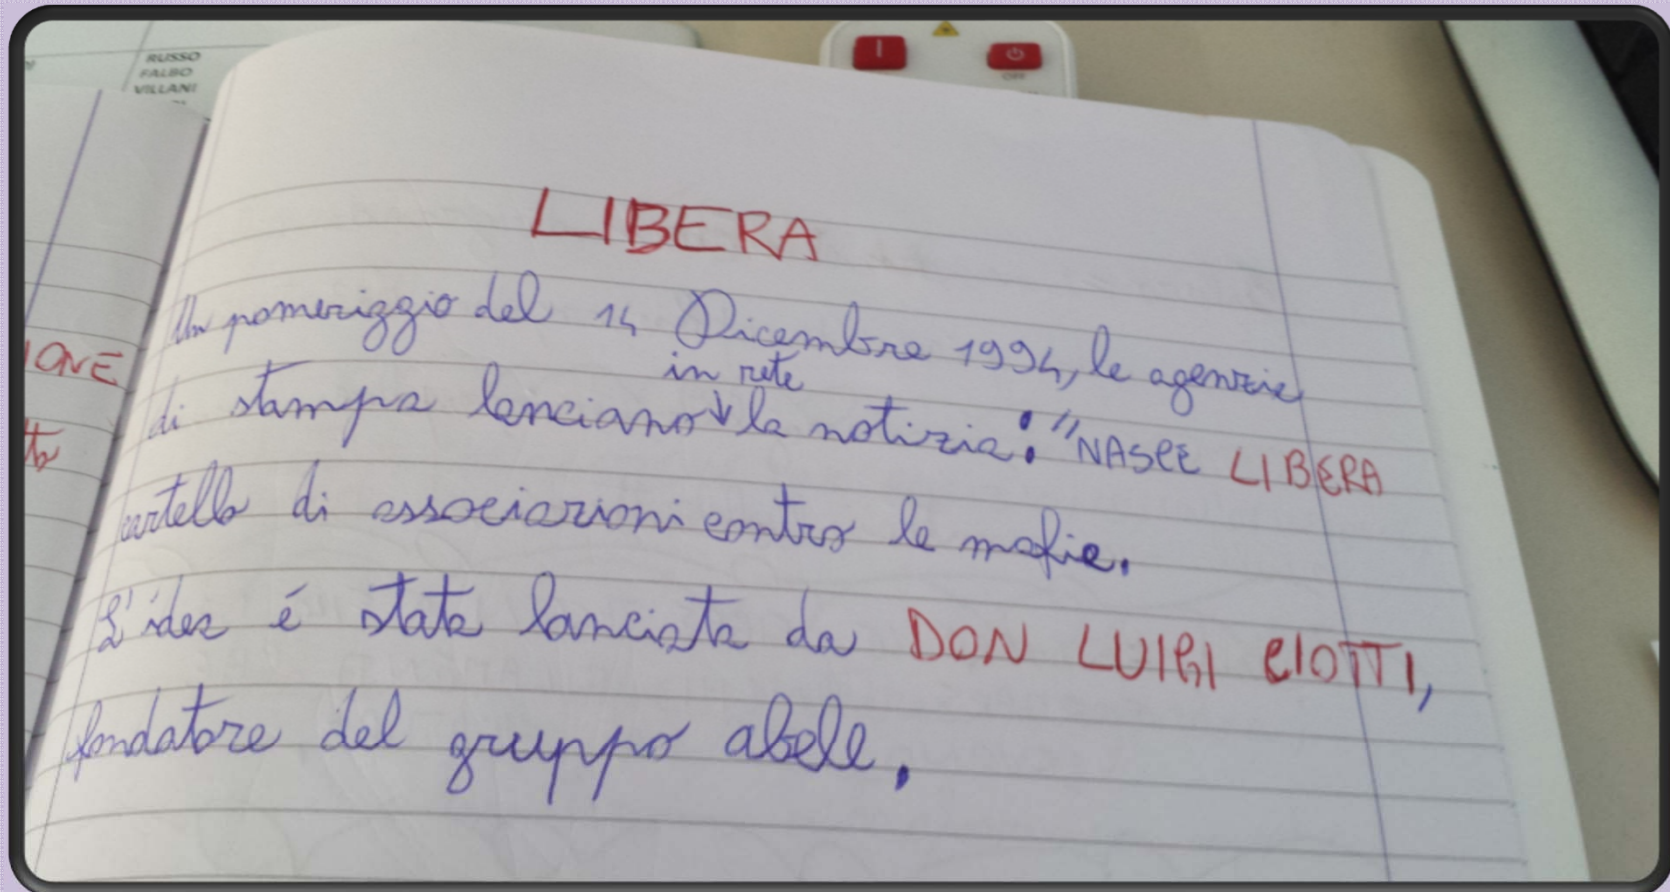 RUSSO
FALBO
VILLANI
OFF
IONE
to
LIBERA
Un pomeriggio del 14 Dicembre 1994, le agenzie
in rete
di stampa lanciano ↓ la notizia: "NASCE LIBERA
cartello di associazioni contro le mafie.
L'idea é stata lanciata da DON LUIGI CIOTTI,
fondatore del gruppo abele.